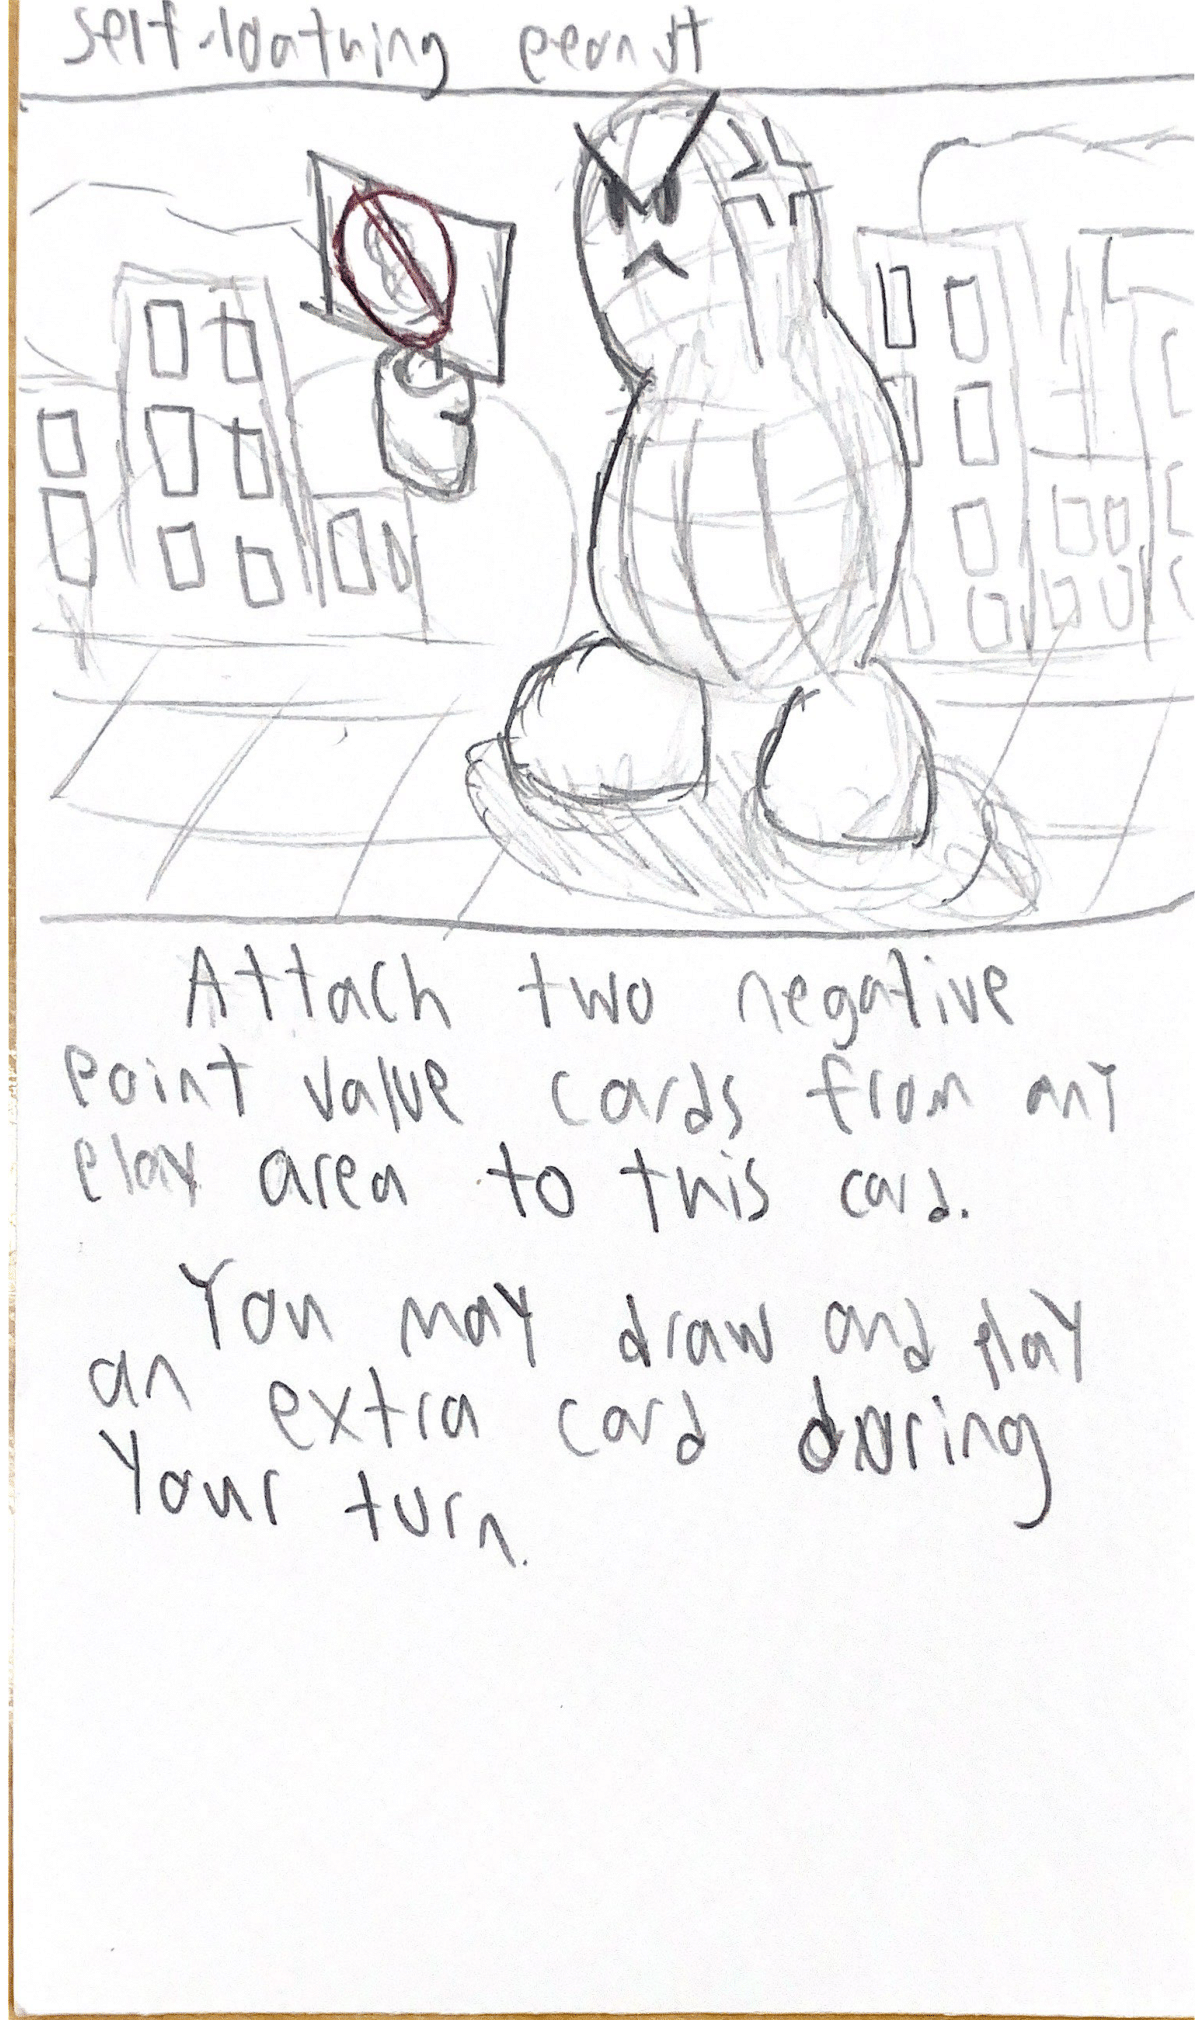 self-loathing peanut
Attach two negative
point value cards from any
play area to this card.
You may draw and play
an extra card during
Your turn.